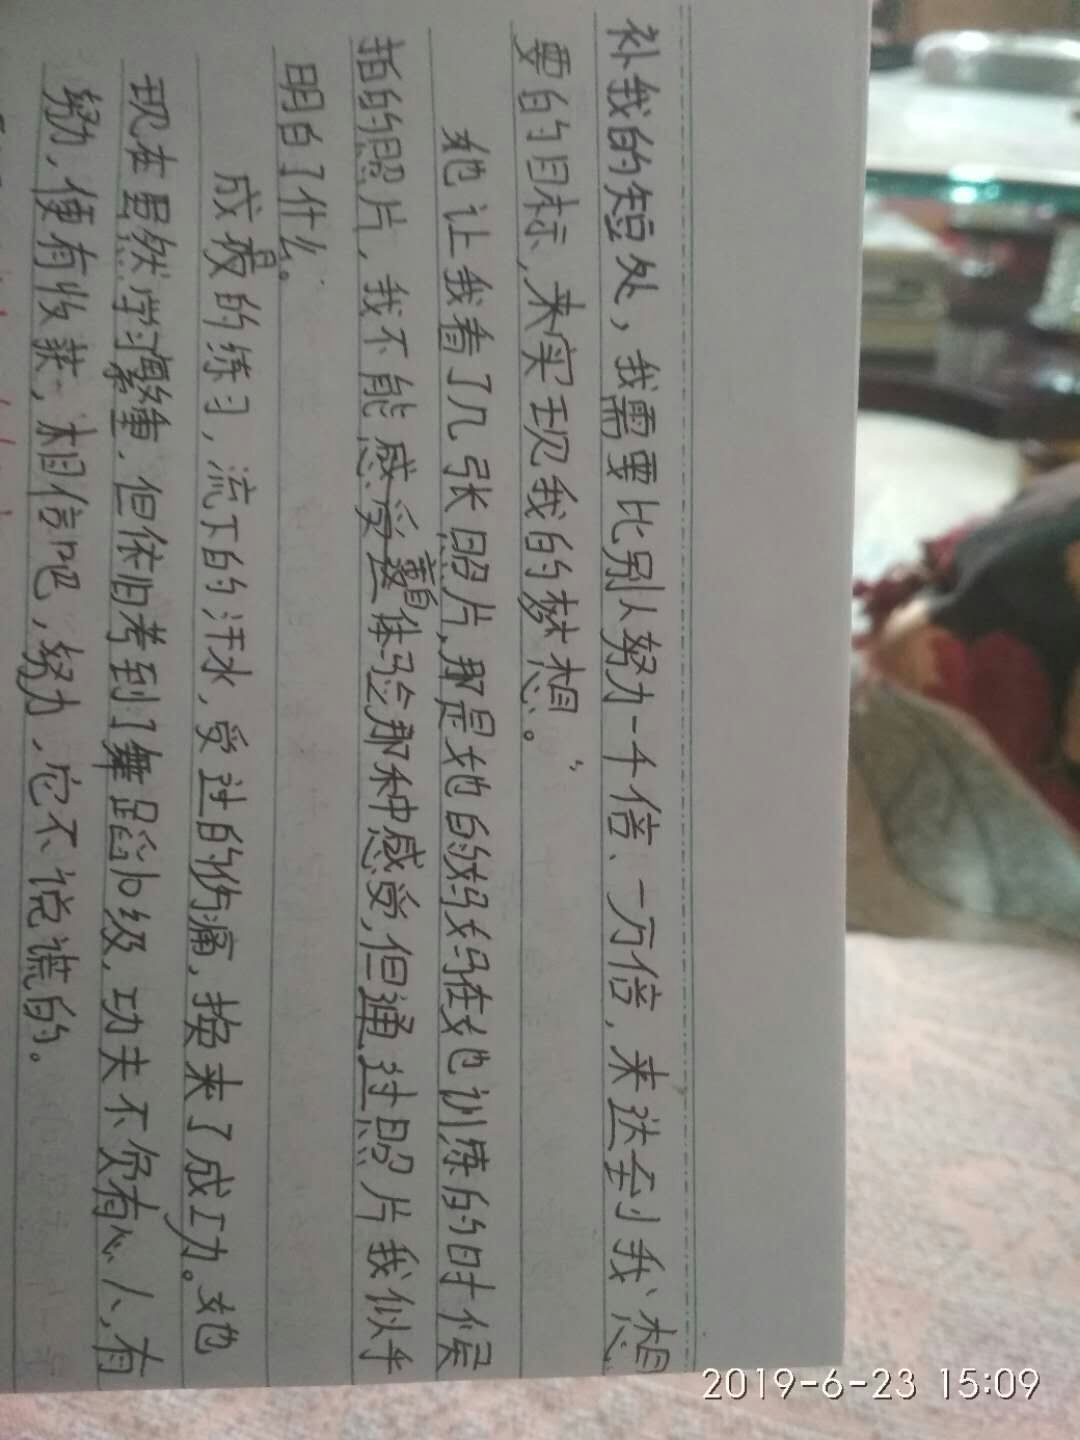 补我的短处，我需要比别人努力一千倍、一万倍，来达到我想
要的目标，来实现我的梦想。”
她让我看了几张照片，那是她的妈妈在她训练的时候
拍的照片，我不能感受亲自体验那种感受，但通过照片我似乎
明白了什么。
成夜的练习，流下的汗水，受过的伤痛，换来了成功。她
现在虽然学习繁重，但依旧考到了舞蹈10级，功夫不负有心人，有
努力，便有收获，相信吧，努力，它不说谎的。
2019-6-23 15:09